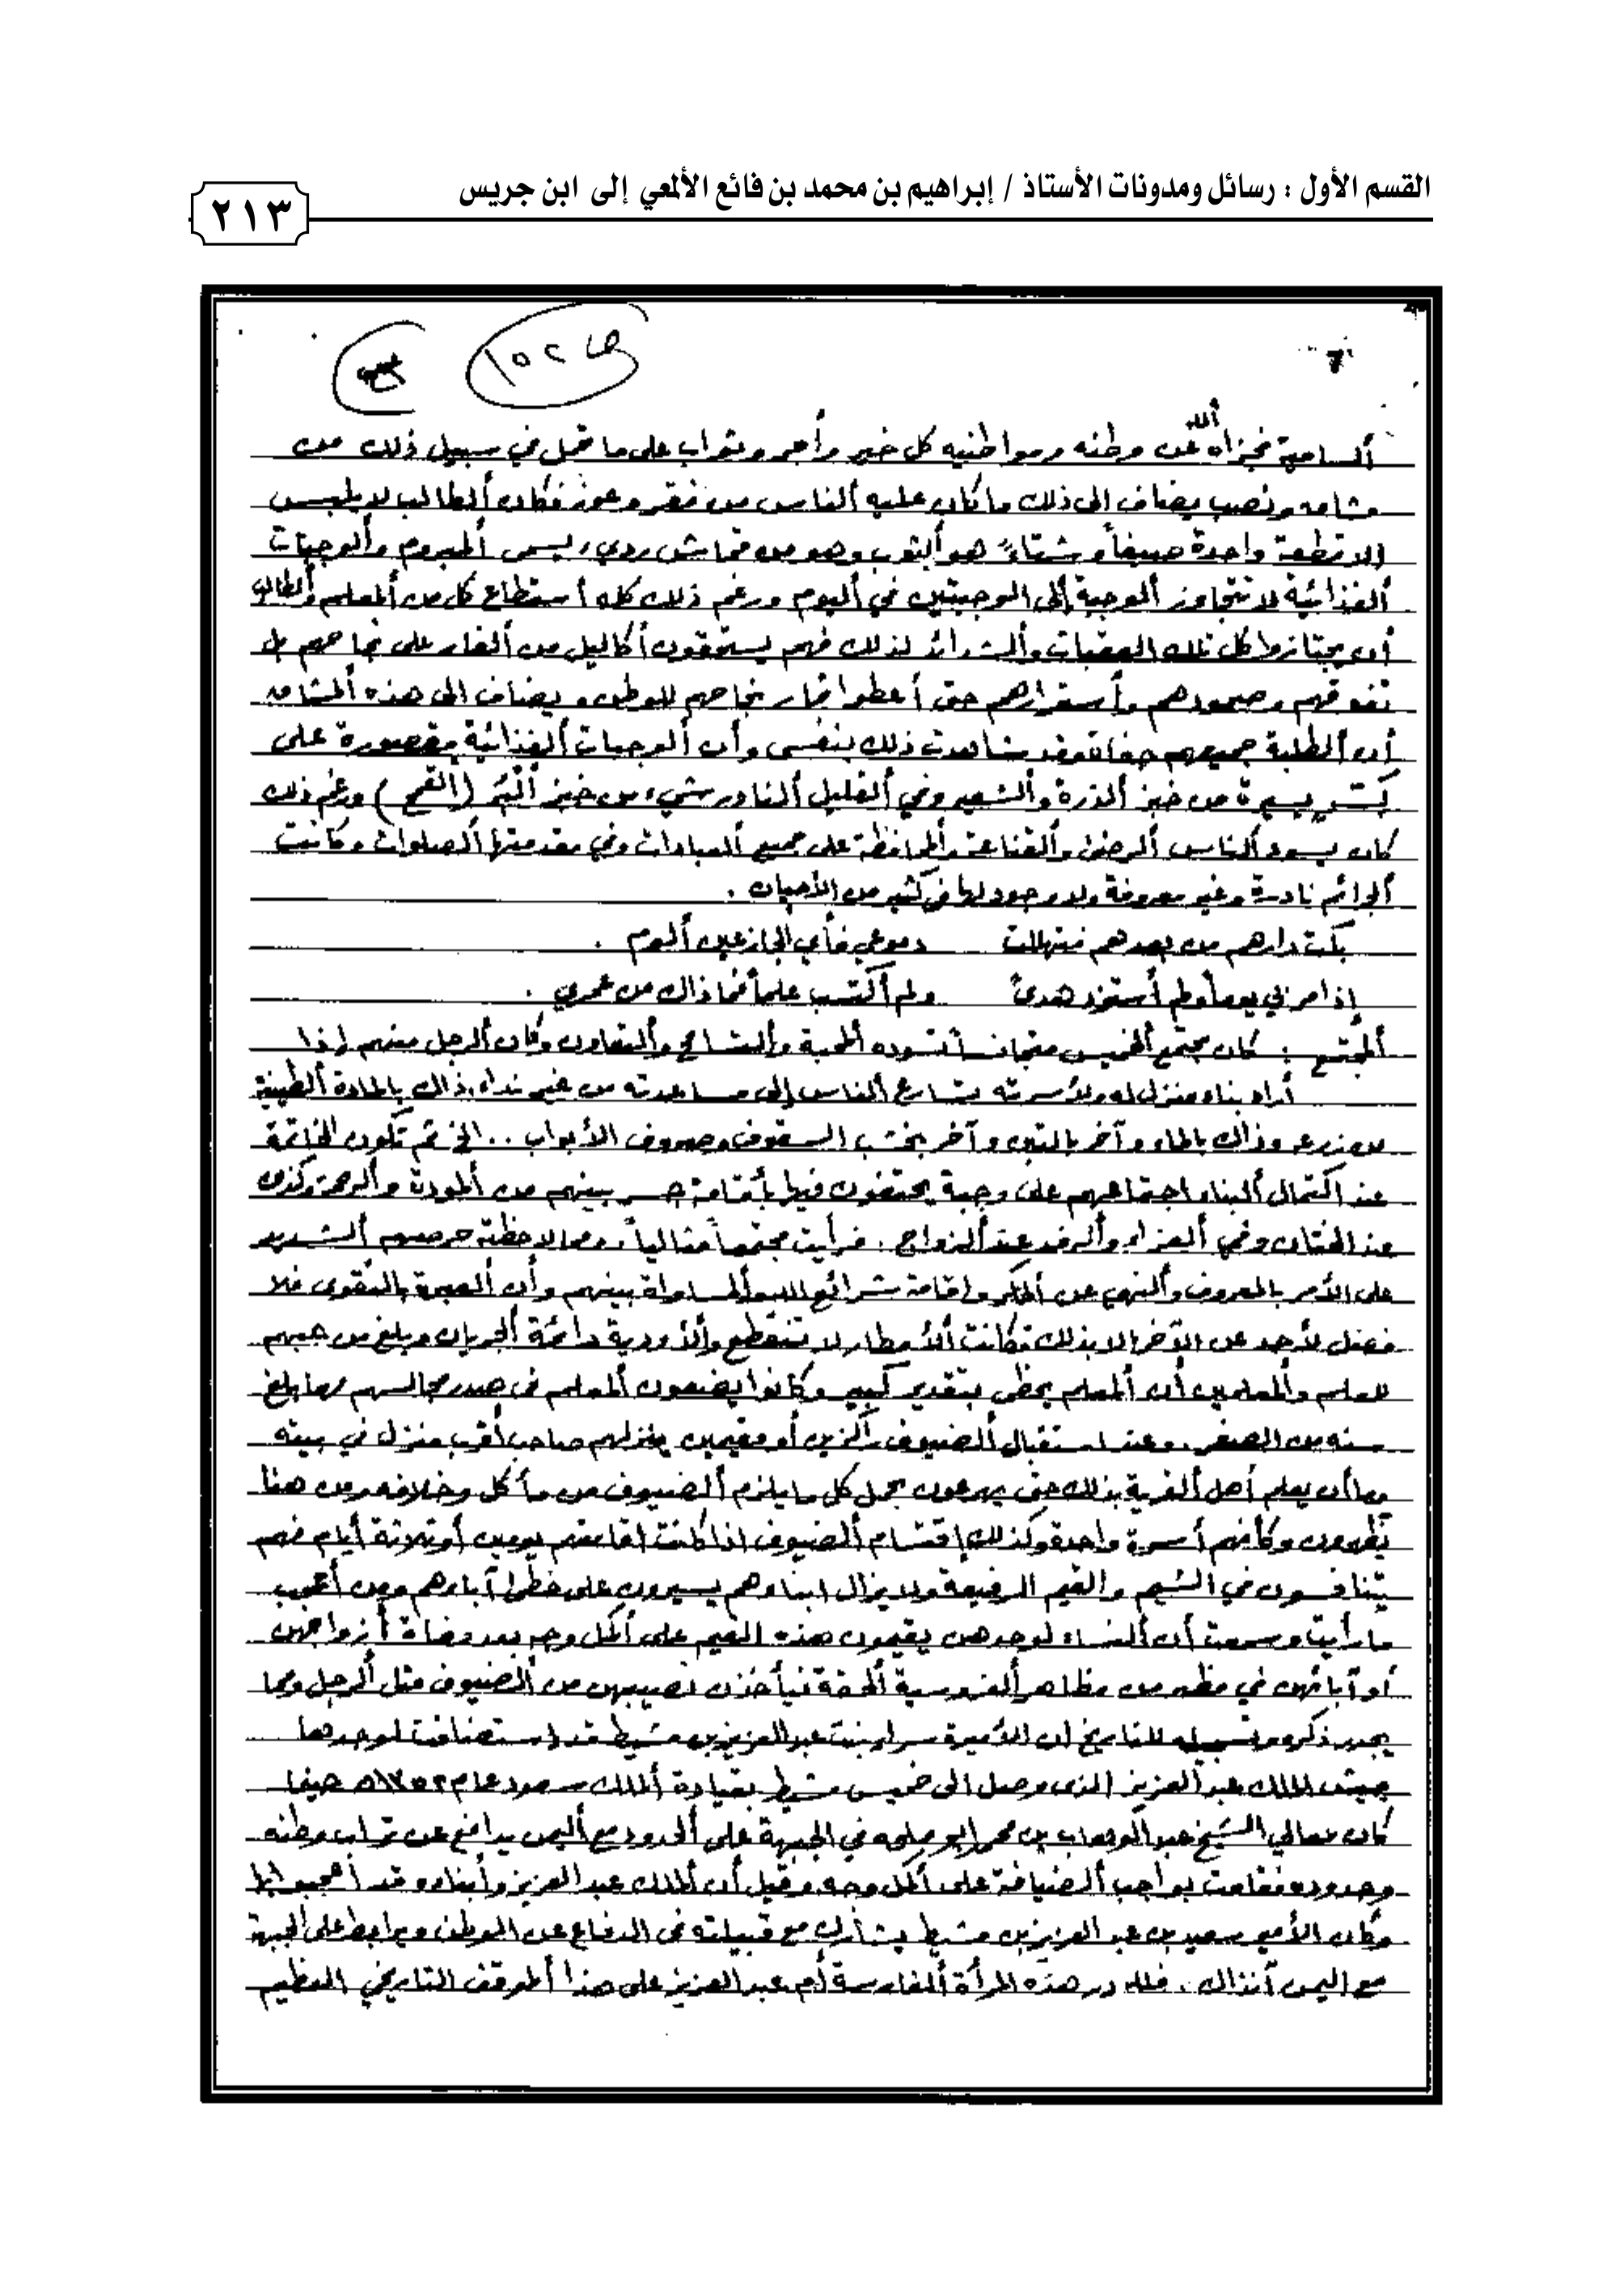 القسم الأول : رسائل ومدونات الأستاذ / إبراهيم بن محمد بن فائع الألمعي إلى ابن جريس
٢١٣
ص ١٥٢
السامية فجزاه الله عن وطنه ومواطنيه كل خير وأجر وثواب على ما تحمل في سبيل ذلك من
مشاق ونصب يضاف الى ذلك ما كان عليه الناس من فقر وعوز فكان الطالب لا يلبس
إلا قطعة واحدة صيفاً وشتاءً هو الثوب وهو من قماش رديء يسمى المبروم والوجبات
الغذائية لا تتجاوز الوجبة إلى الوجبتين في اليوم ورغم ذلك كله أستطاع كل من المعلم والطالب
أن يجتازوا كل تلك العقبات والشدائد لذلك فهم يستحقون أكاليل من الغار على نجاحهم بل
تفوقهم وصمودهم وأستمرارهم حتى أعطوا ثمار نجاحهم للوطن ويضاف الى هذه المشاق
أن الطلبة جميعهم حفاة وقد شاهدت ذلك بنفسي وأن الوجبات الغذائية مقصورة على
كسر يسيرة من خبز الذرة والشعير وفي القليل النادر شيء من خبز البُر (القمح) ورغم ذلك
كان يسود الناس الرضى والقناعة والمحافظة على جميع العبادات وفي مقدمتها الصلوات وكانت
الجرائم نادرة وغير معروفة ولا وجود لها في كثير من الأحيان .
بكت دارهم من بعدهم فتهللت دموعي فأي الجازعين ألوم .
إذا مر بي يوماً ولم أستزد هدىً ولم أكتسب علماً فما ذاك من عمري .
المجتمع : كان مجتمع الخميس متجانساً تسوده المحبة والتسامح والتعاون وكان الرجل منهم إذا
أراد بناء منزل له ولأسرته يتسارع الناس إلى مساعدته من غير نداء، ذاك بالمادة الطينية
من زرعه وذاك بالماء وآخر بالتبن وآخر بخشب السقوف وصروف الأبواب .. الخ ثم تكون الخاتمة
عند اكتمال البناء اجتماعهم على وجبة يحتفون فيها بأقامة جسر بينهم من المودة والرحمة وكذلك
عند الختان وفي العزاء والرفد عند الزواج . فرأيت مجتمعاً مثالياً، ومما لاحظته حرصهم الشديد
على الأمر بالمعروف والنهي عن المنكر وإقامة شرائع الله والمساواة بينهم وأن العبرة بالتقوى فلا
فضل لأحد عن الآخر إلا بذلك فكانت الأمطار لا تنقطع والأودية دائمة الجريان وبلغ من حبهم
للعلم والمعلمين أن المعلم يحظى بتقدير كبير وكانوا يضعون المعلم في صدر مجالسهم مهما بلغ
سنه من الصغر. وعند استقبال الضيوف زائرين أو مقيمين ينزلهم صاحب أقرب منزل في بيته
وما أن يعلم أهل القرية بذلك حتى يهرعون بحمل كل ما يلزم الضيوف من مأكل وخلافه ومن هنا
يظهرون وكأنهم أسرة واحدة وكذلك إقتسام الضيوف اذا كانت اقامتهم يومين أو ثلاثة أيام فهم
يتنافسون في الشيم والقيم الرفيعة ولا يزال ابناؤهم يسيرون على خطى آبائهم ومن أعجب
ما رأيت وسمعت أن النساء لوحدهن يقيمون هذه القيم على أكمل وجه بعد وفاة أزواجهن
أو آبائهن في مظهر من مظاهر الفروسية الحقة فيأخذن نصيبهن من الضيوف مثل الرجل ومما
يجدر ذكره وتسجيله للتاريخ أن الأميرة سراء بنت عبدالعزيز بن مشيط قد استضافت لوحدها
جيش الملك عبد العزيز الذي وصل الى خميس مشيط بقيادة الملك سعود عام ١٣٥٢هـ حينما
كان معالي الشيخ عبد الوهاب بن محمد أبو ملحه في الجبهة على الحدود مع اليمن يدافع عن تراب وطنه
وحدوده فقامت بواجب الضيافة على أكمل وجه وقيل أن الملك عبد العزيز وأبناءه قد أعجبوا بها
وكان الأمير سعيد بن عبد العزيز بن مشيط يشارك مع قبيلته في الدفاع عن الوطن ويرابط على الجبهة
مع اليمن آنذاك . فلله در هذه المرأة الفارسة أم عبد العزيز على هذا الموقف التاريخي العظيم